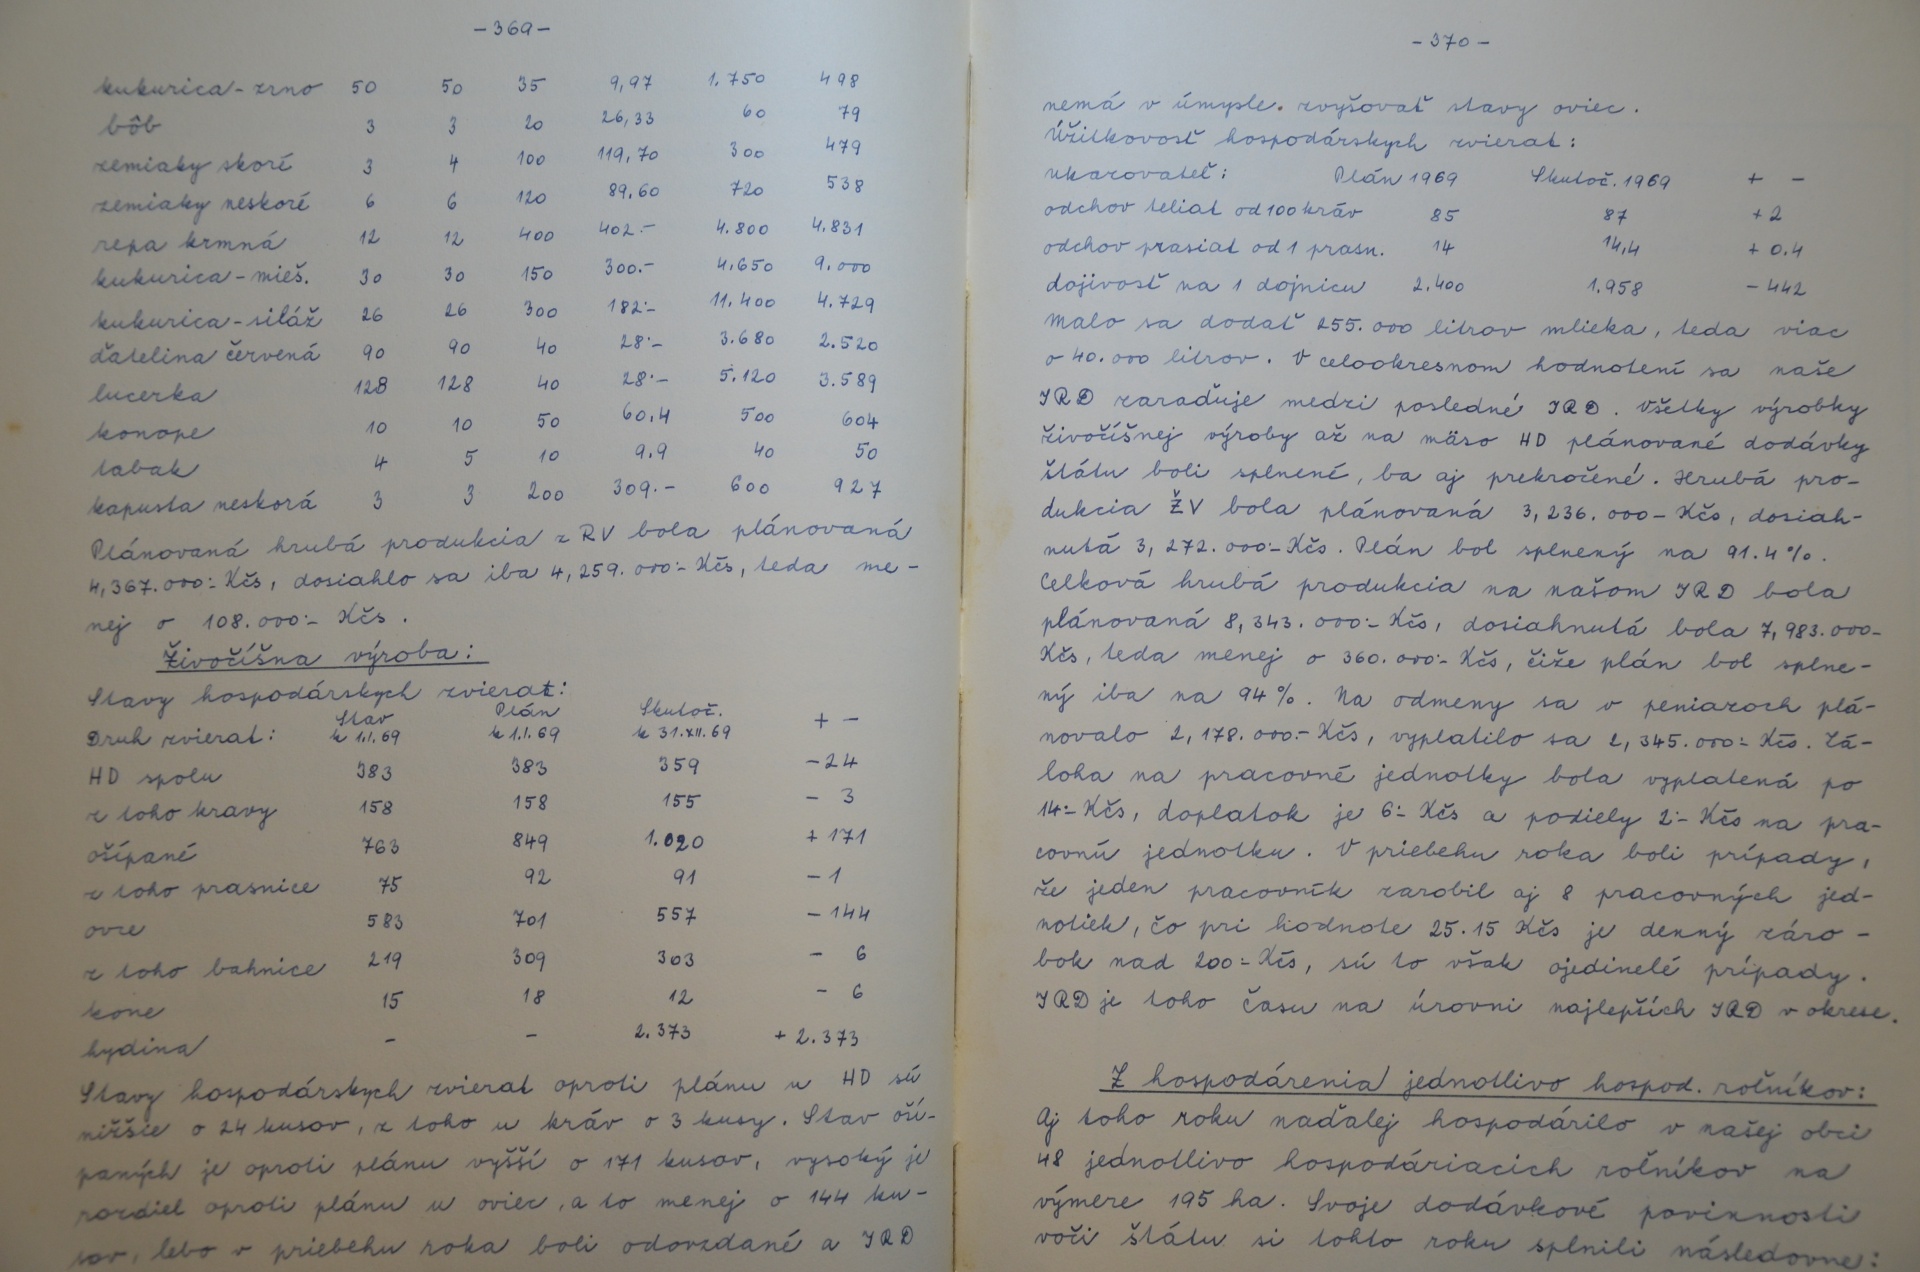 -369-
kukurica-zrno 50 50 35 9,97 1.750 498
bôb 3 3 20 26,33 60 79
zemiaky skoré 3 4 100 119,70 300 479
zemiaky neskoré 6 6 120 89.60 720 538
repa krmná 12 12 400 402.- 4.800 4.831
kukurica-mieš. 30 30 150 300.- 4.650 9.000
kukurica-siláž 26 26 300 182:- 11.400 4.729
ďatelina červená 90 90 40 28:- 3.680 2.520
lucerka 128 128 40 28:- 5.120 3.589
konope 10 10 50 60,4 500 604
tabak 4 5 10 9.9 40 50
kapusta neskorá 3 3 200 309.- 600 927
Plánovaná hrubá produkcia z RV bola plánovaná
4,367.000:- Kčs, dosiahlo sa iba 4,259.000:- Kčs, teda me-
nej o 108.000:- Kčs.
Živočíšna výroba:
Stavy hospodárskych zvierat:
Druh zvierat: Stav k 1.I.69 Plán k 1.I.69 Skutoč. k 31.XII.69 + -
HD spolu 383 383 359 -24
z toho kravy 158 158 155 - 3
ošípané 763 849 1.020 +171
z toho prasnice 75 92 91 -1
ovce 583 701 557 -144
z toho bahnice 219 309 303 - 6
kone 15 18 12 - 6
hydina - - 2.373 + 2.373
Stavy hospodárskych zvierat oproti plánu u HD sú
nižšie o 24 kusov, z toho u kráv o 3 kusy. Stav oší-
paných je oproti plánu vyšší o 171 kusov, vysoký je
rozdiel oproti plánu u oviec, a to menej o 144 ku-
sov, lebo v priebehu roka boli odovzdané a JRD
-370-
nemá v úmysle. zvyšovať stavy oviec.
Úžitkovosť hospodárskych zvierat:
ukazovateľ: Plán 1969 Skutoč. 1969 + -
odchov teliat od 100 kráv 85 87 +2
odchov prasiat od 1 prasn. 14 14,4 + 0.4
dojivosť na 1 dojnicu 2.400 1.958 - 442
Malo sa dodať 255.000 litrov mlieka, teda viac
o 40.000 litrov. V celookresnom hodnotení sa naše
JRD zaraďuje medzi posledné JRD. Všetky výrobky
živočíšnej výroby až na mäso HD plánované dodávky
štátu boli splnené, ba aj prekročené. Hrubá pro-
dukcia ŽV bola plánovaná 3,236.000- Kčs, dosiah-
nutá 3,272.000:- Kčs. Plán bol splnený na 91.4%.
Celková hrubá produkcia na našom JRD bola
plánovaná 8,343.000:- Kčs, dosiahnutá bola 7,983.000-
Kčs, teda menej o 360.000:- Kčs, čiže plán bol splne-
ný iba na 94%. Na odmeny sa v peniazoch plá-
novalo 2,178.000.- Kčs, vyplatilo sa 2,345.000:- Kčs. Zá-
loha na pracovné jednotky bola vyplatená po
14:- Kčs, doplatok je 6:- Kčs a podiely 2:- Kčs na pra-
covnú jednotku. V priebehu roka boli prípady,
že jeden pracovník zarobil aj 8 pracovných jed-
notiek, čo pri hodnote 25.15 Kčs je denný záro-
bok nad 200:- Kčs, sú to však ojedinelé prípady.
JRD je toho času na úrovni najlepších JRD v okrese.
Z hospodárenia jednotlivo hospod. roľníkov:
Aj toho roku naďalej hospodárilo v našej obci
48 jednotlivo hospodáriacich roľníkov na
výmere 195 ha. Svoje dodávkové povinnosti
voči štátu si tohto roku splnili následovne: